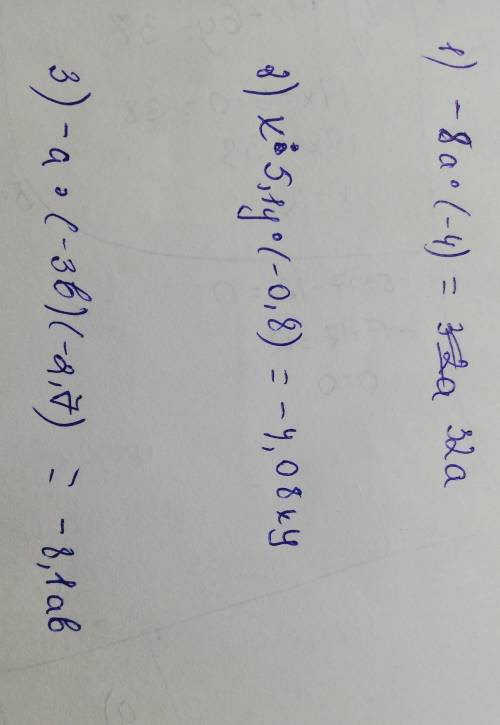 1) -8a·(-4) = 32a
2) x·5,1y·(-0,8) = -4,08xy
3) -a·(-3b)(-2,7) = -8,1ab